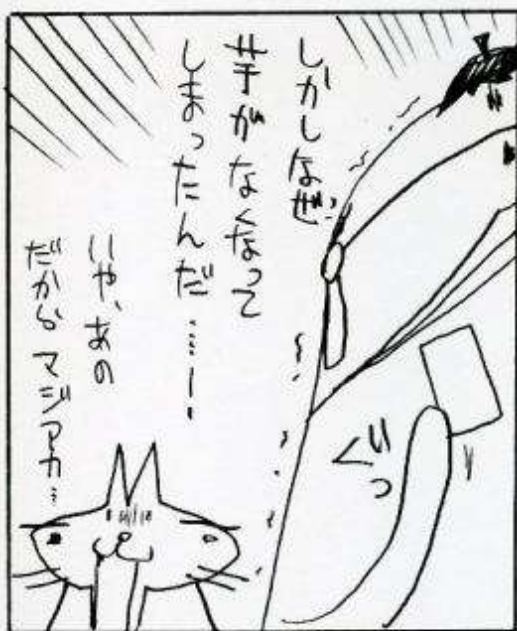 しかしなぜ
芋がなくなって
しまったんだ……!
いや、あの
だから マジアカ…
ぐいっ